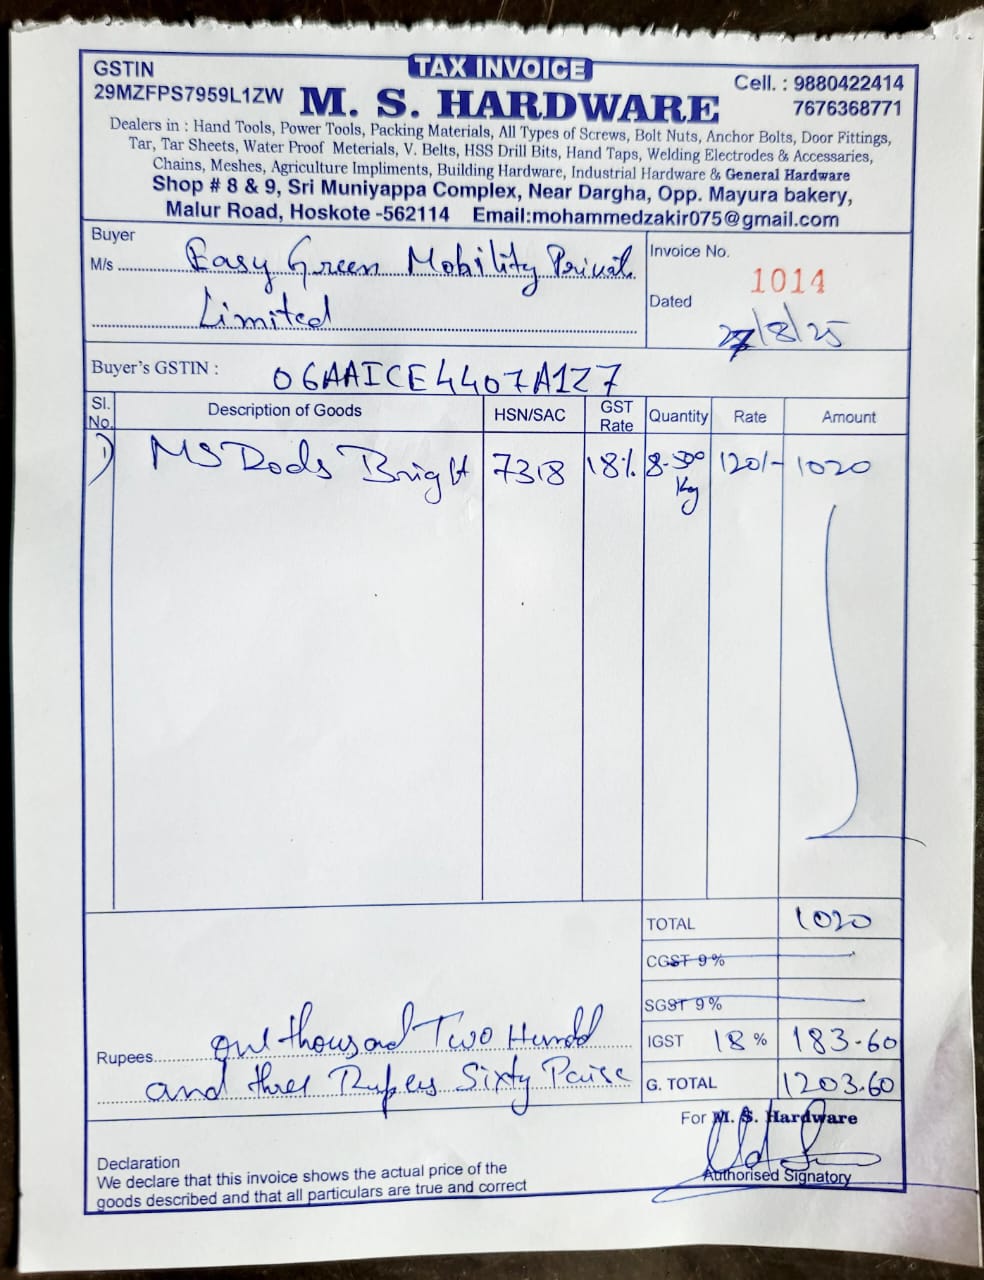 TAX INVOICE
GSTIN
29MZFPS7959L1ZW
Cell. : 9880422414
7676368771
M. S. HARDWARE
Dealers in : Hand Tools, Power Tools, Packing Materials, All Types of Screws, Bolt Nuts, Anchor Bolts, Door Fittings,
Tar, Tar Sheets, Water Proof Meterials, V. Belts, HSS Drill Bits, Hand Taps, Welding Electrodes & Accessaries,
Chains, Meshes, Agriculture Impliments, Building Hardware, Industrial Hardware & General Hardware
Shop # 8 & 9, Sri Muniyappa Complex, Near Dargha, Opp. Mayura bakery,
Malur Road, Hoskote -562114 Email:mohammedzakir075@gmail.com
Buyer
M/s Easy Green Mobility Privat
Limited
Invoice No.
1014
Dated
27/8/25
Buyer's GSTIN : 06AAICE4407A1Z7
Sl. No. Description of Goods HSN/SAC GST Rate Quantity Rate Amount
1) MS Rods Bright 7318 18% 8.500 Kg 120/- 1020
TOTAL 1020
CGST 9%
SGST 9%
IGST 18 % 183.60
G. TOTAL 1203.60
Rupees One thousand Two Hundd
and three Rupees Sixty Paise
For M. S. Hardware
Authorised Signatory
Declaration
We declare that this invoice shows the actual price of the
goods described and that all particulars are true and correct